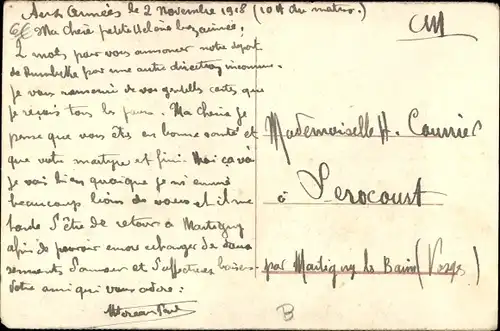 Aux Armées le 2 Novembre 1918 (10H du matin.)
Ma chère petite Hélène bozaimée;
2 mots pour vous annoncer notre départ
de par une autre direction inconnue.
Je vous remercie de vos gentilles cartes que
je reçois tous les jours. Ma chérie je
pense que vous êtes en bonne santé et
que votre martyre et fini. Moi ça va
je vais bien quoique je m'ennuie
beaucoup loins de vous et il me
tarde d'être de retour à Martigny
afin de pouvoir encore echanger de doux
serments d'amour et d'affectueux baisers
Votre ami qui vous adore:
CM
Mademoiselle H. Counier
à Serocourt
par Martigny les Bains (Vosges)
B